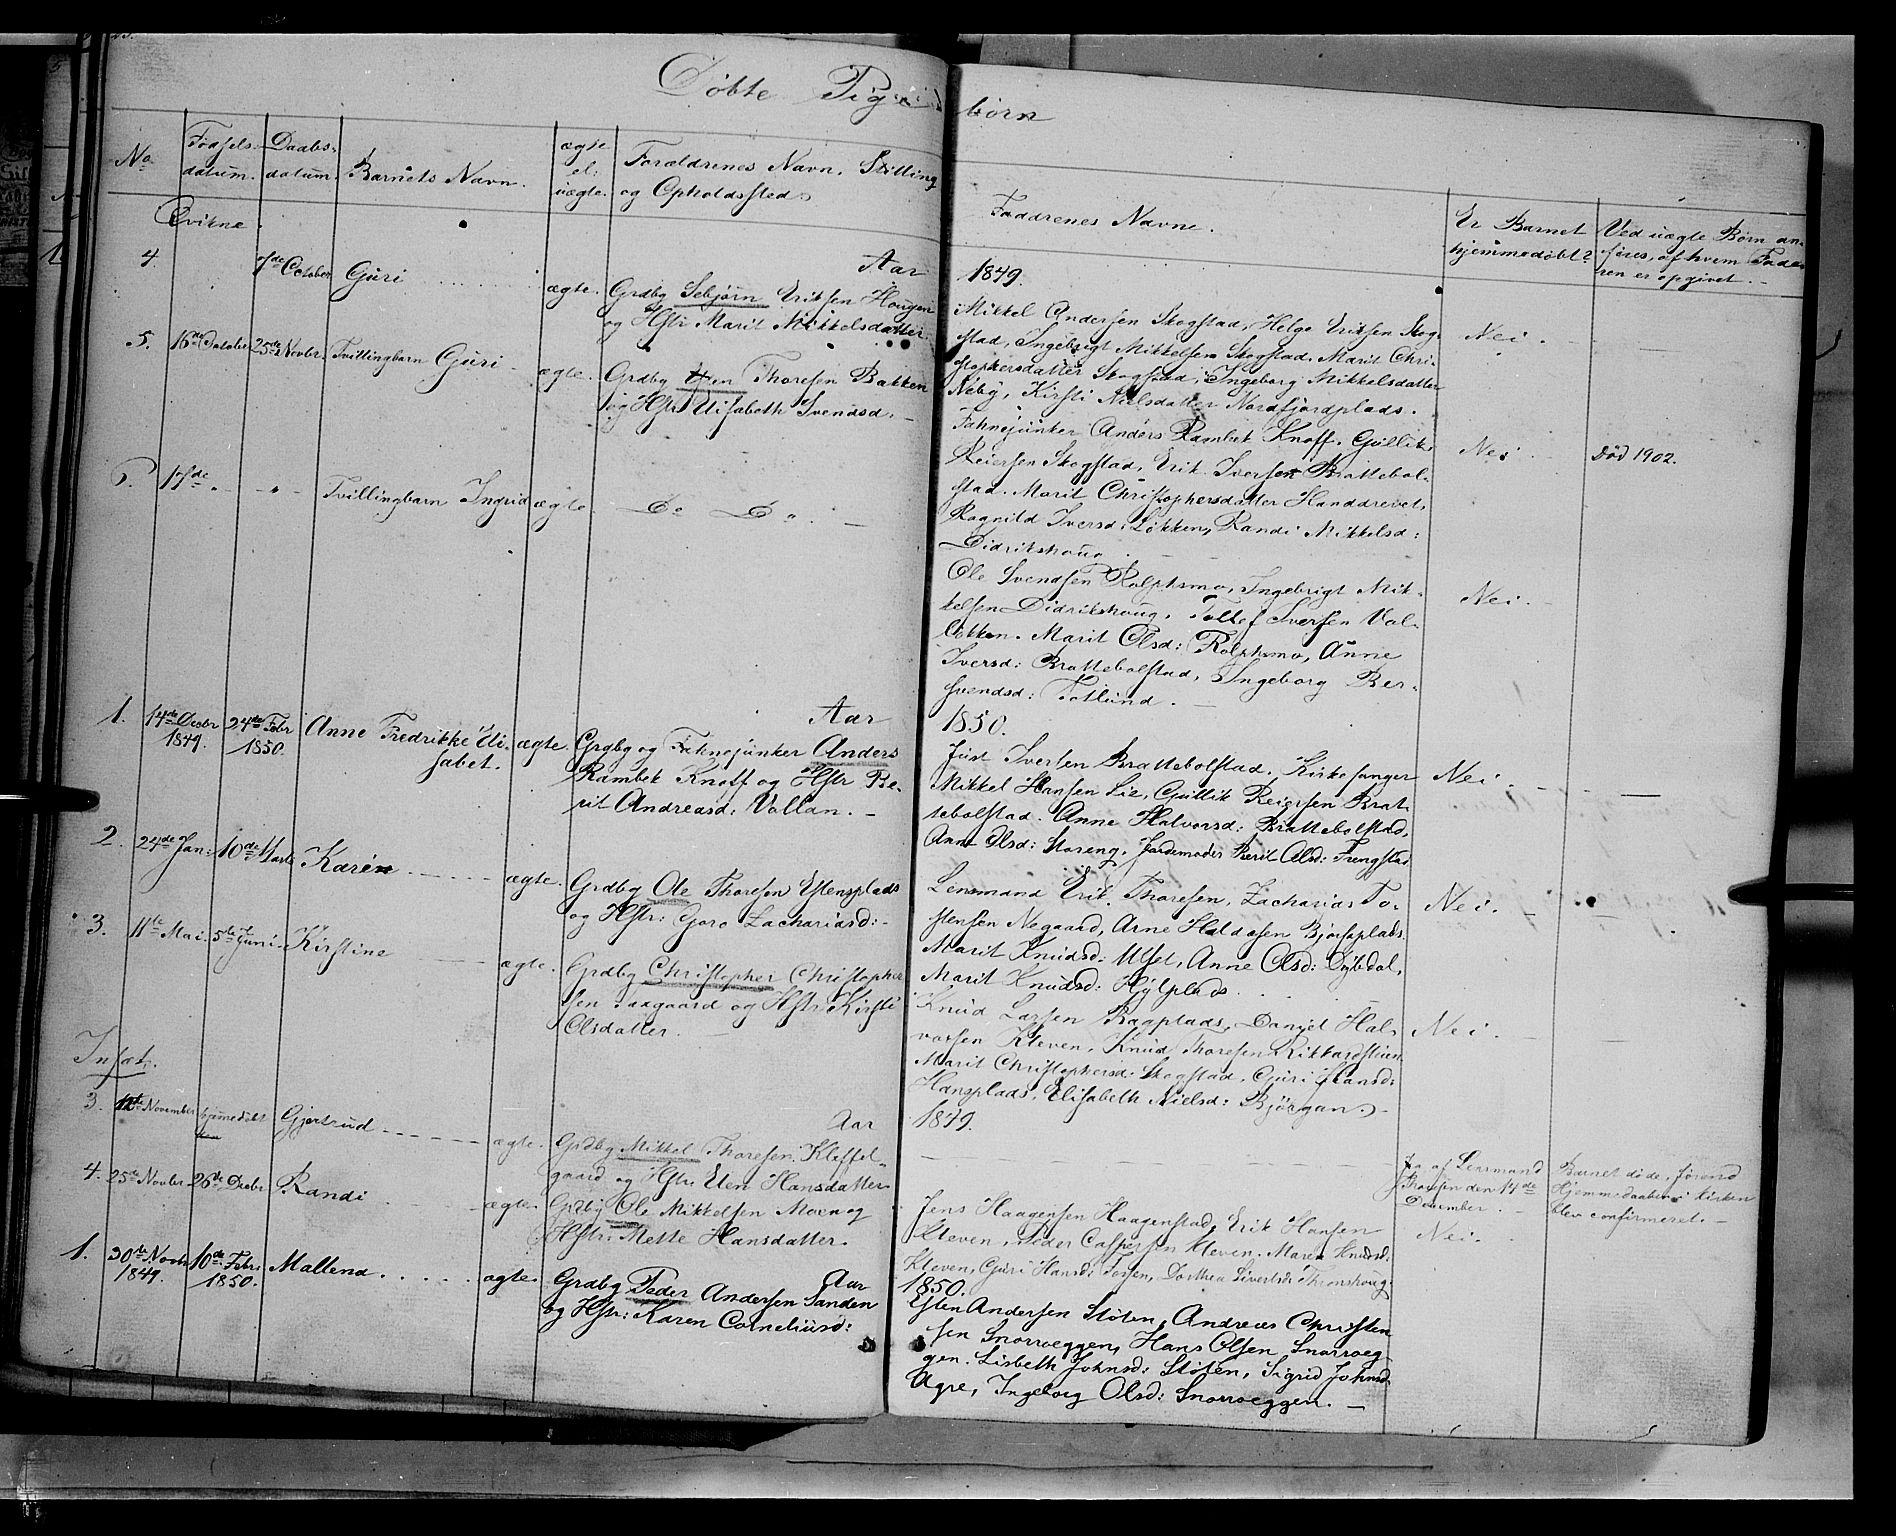 Døbte Pigebørn
No
Fødsels-
datum.
Daabs-
datum.
Barnets Navn.
ægte
el:
uægte.
Forældrenes Navn, Stilling
og Opholdssted.
Faddrenes Navne.
Er Barnet
hjemmedøbt?
Ved uægte Børn an-
føres, af hvem Fade-
ren er opgivet.
Qvikne.
Aar
1849.
4.
7de October
Guri
ægte.
Grdbg Sebjørn Eriksen Hougen
og Hstr Marit Mikkelsdatter
Mikkel Andersen Skogstad, Helge Eriksen Skog-
stad, Ingebrigt Mikkelsen Skogstad. Marit Chri-
stophersdatter Skogstad, Ingeborg Mikkelsdatter
Neby, Kirsti Nielsdatter Nordfjordplads.
Nei.
5.
16de October
25de Novbr.
Tvillingbarn Guri
ægte.
Grdbg Thoresen Bakken
og Hstr Elisabeth Svendsd.
Fahnejunker Anders Rambek Knoff. Gullik
Reiersen Skogstad, Erik Iversen Brattebol-
stad. Marit Christophersdatter Handdrevet,
Ragnild Iversd: Løkken, Randi Mikkelsd:
Didrikshoug.
Nei
Død 1902.
6.
17de
Tvillingbarn Ingrid
ægte
Do Do
Ole Svendsen Rolphsmo, Ingebrigt Mik-
kelsen Didrikshoug, Tollef Iversen Val-
løkken. Marit Olsd: Rolphsmo, Anne
Iversd: Brattebolstad, Ingeborg Ber-
svendsd: Fotlund.
Nei.
Aar
1850.
1.
14de Decbr
1849.
24de Febr
1850.
Anne Fredrikke Eli-
sabet.
ægte.
Grdbg og Fahnejunker Anders
Rambek Knoff og Hstr Be-
rit Andreasd: Vollan.
Just Iversen Brattebolstad. Kirkesanger
Mikkel Hansen Lie, Gullik Reiersen Brat-
tebolstad. Anne Halvorsd: Brattebolstad,
Anne Olsd: Storeng, Jordemoder Berit Olsd: Frengstad
Nei.
2.
24de Jan:
10de Marts
Karen
ægte.
Grdbg Ole Thoresen Estensplads
og Hstr: Goro Zachariasd:
Lensmand Erik Thoresen, Zacharias To-
stensen Negaard, Arne Haldosen Bjørsplads.
Marit Knudsd: Utset, Anne Olsd: Dybdal,
Marit Knudsd: Hylplads.
Nei.
3.
11te Mai.
5te Juni.
Kirstine
ægte.
Grdbg Christopher Christopher-
sen Aasgaard og Hstr Kirsti
Olsdatter.
Knud Larsen Rogplads, Daniel Hal-
vorsen Kleven, Knud Thoresen Rikkardstuen.
Marit Christophersd: Skogstad, Guri Hansd:
Hansplads, Elisabeth Nielsd: Bjørgan.
Nei.
Insæt.
Aar
1849.
3.
12te November
hjemmedøbt
Gjertrud
ægte.
Grdbg Mikkel Thoresen Kleffel-
gaard og Hstr Elen Hansdatter
Ja af Lensmand
Thoresen den 14de
December.
Barnet døde, førend
Hjemmedaaben i Kirken
blev confirmeret.
4.
25de Novbr
26de Decbr
Randi
ægte.
Grdbg Ole Mikkelsen Moen og
Hstr: Mette Hansdatter.
Jens Haagensen Haagenstad, Erik Hansen
Kleven, Peder Caspersen Kleven. Maren Knudsd:
Kleven, Guri Hansd: Fossen, Dorthea Sivertsd: Thronshoug.
Nei.
Aar
1850.
1.
30de Novbr
1849.
10de Febr:
1850.
Mallena
ægte.
Grdbg Peder Andersen Sanden
og Hstr: Karen Corneliusd:
Esten Andersen Støten, Andreas Christen-
sen Snorroeggen, Hans Olsen Snorroeg-
gen. Lisbeth Johnsd: Støten, Sigrid Johnsd.
Agre, Ingeborg Olsd: Snorroeggen.